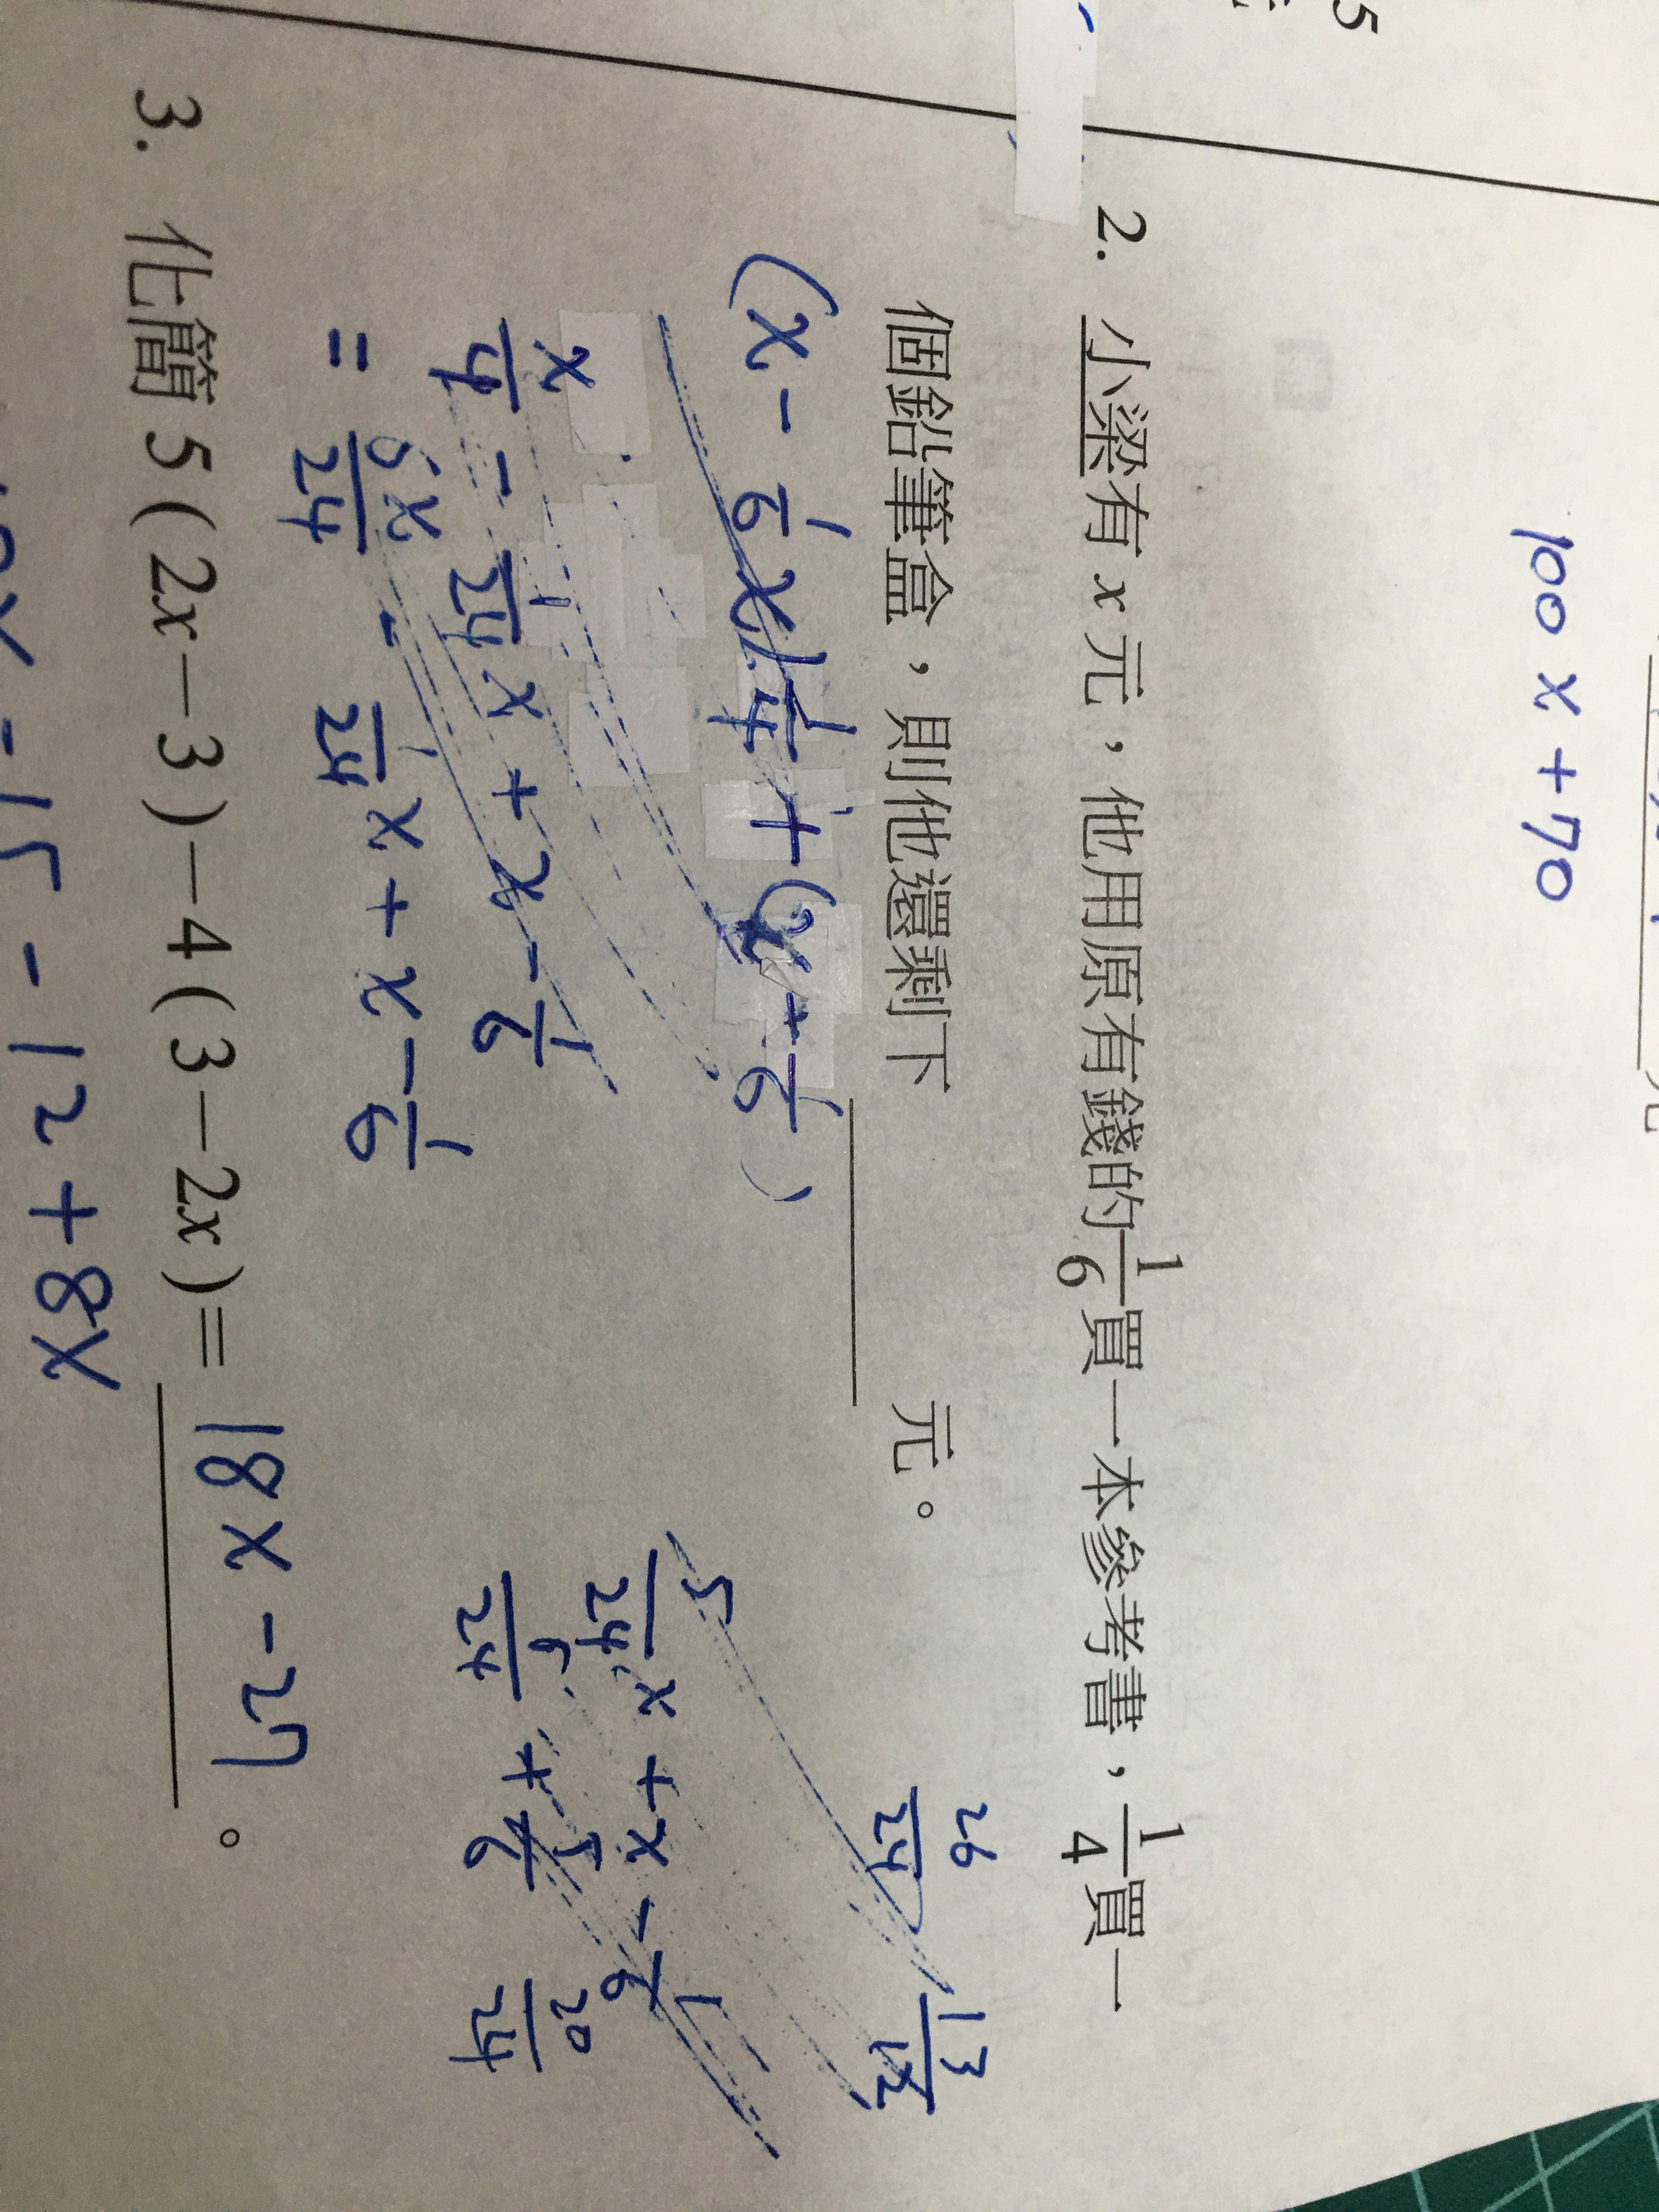 5
100x+70
2. 小梁有 x 元，他用原有錢的 1/6 買一本參考書，1/4 買一
個鉛筆盒，則他還剩下 ______ 元。
26/24 13/12
(x - 1/6 x) 1/4 + (x - 1/6)
5/24 x + x - 1/6
x/4 - 1/24 x + x - 1/6
5/24 + 5/6 20/24
= 6x/24 - 1/24 x + x - 1/6
3. 化簡 5(2x－3)－4(3－2x)= 18x-27 。
-15 - 12 + 8x